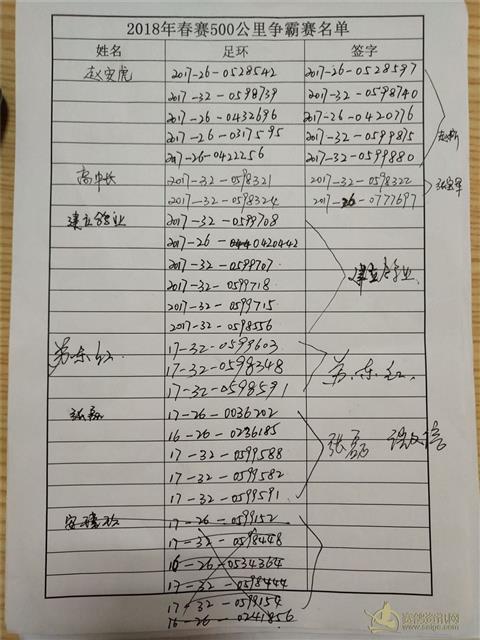 2018年春赛500公里争霸赛名单
姓名 足环 签字
赵安虎 2017-26-0528542 2017-26-0528597
2017-32-0598739 2017-32-0598740
2017-26-0432696 2017-26-0420776
2017-26-0317595 2017-32-0599875
2017-26-0422256 2017-32-0599880
高中长 2017-32-0598321 2017-32-0598322
2017-32-0598324 2017-26-0777697
建立鸽业 2017-32-0599708
2017-26-0420442
2017-32-0599707 建立鸽业
2017-32-0599718
2017-32-0599715
2017-32-0598556
苏东红 17-32-0599603
17-32-0598348 苏东红
17-32-0598591
张磊 17-26-0036202
16-26-0736185 张磊
17-32-0599588
17-32-0599582
17-32-0599591
17-26-0599152
17-32-0598448
16-26-0534364
17-32-0598444
17-32-0599154
16-26-0241856
赛鸽资讯网
www.saige.com